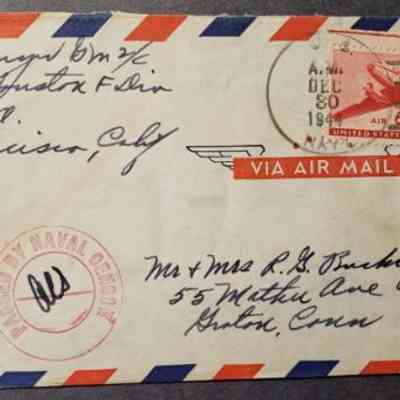 GM 2/c
Houston F Div
cisco, Calif
A.M.
DEC
30
1944
NAVY
AIR 6
UNITED STATES
VIA AIR MAIL
PASSED BY NAVAL CENSOR
Mr & Mrs R. G.
55 Ave
Groton, Conn